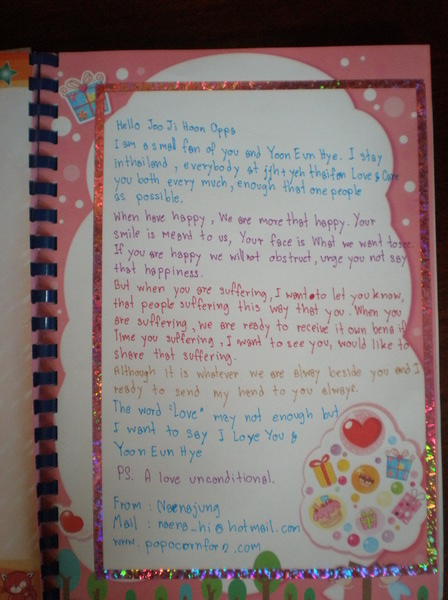 Hello Joo Ji Hoon Oppa
I am a small fan of you and Yoon Eun Hye. I stay
inthailand, everybody at jjhtyeh thaifan Love & Care
you both every much, enough that one people
as possible.
When have happy, We are more that happy. Your
smile is Meant to us, Your face is What we want to see.
If you are happy we will not obstruct, urge you not say
that happiness.
But when you are suffering, I want to let you know,
that people suffering this way that you. When you
are suffering, we are ready to receive it own
Time you suffering, I want to see you, would like to
share that suffering.
Although it is whatever we are alway beside you and I
ready to send my hand to you always.
The word "Love" may not enough but
I want to say I Love You &
Yoon Eun Hye
PS. A love unconditional.
From : Naenajung
Mail : naena_hi@hotmail.com
www. popcornfor2.com